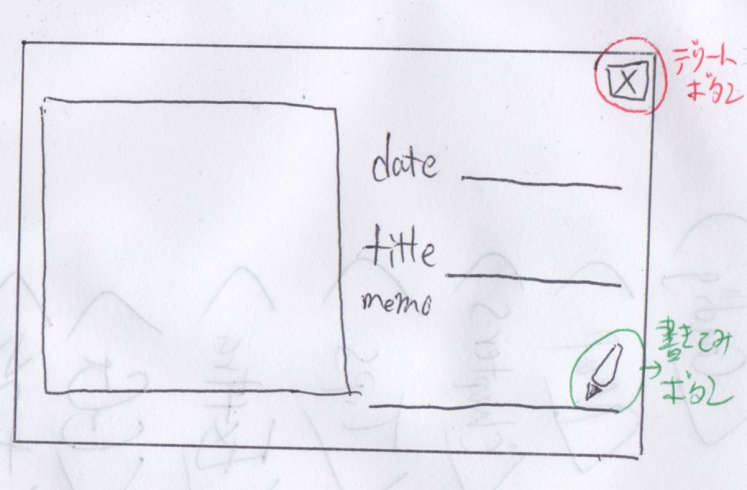 デリート
ボタン
X
date
title
memo
書きこみ
ボタン